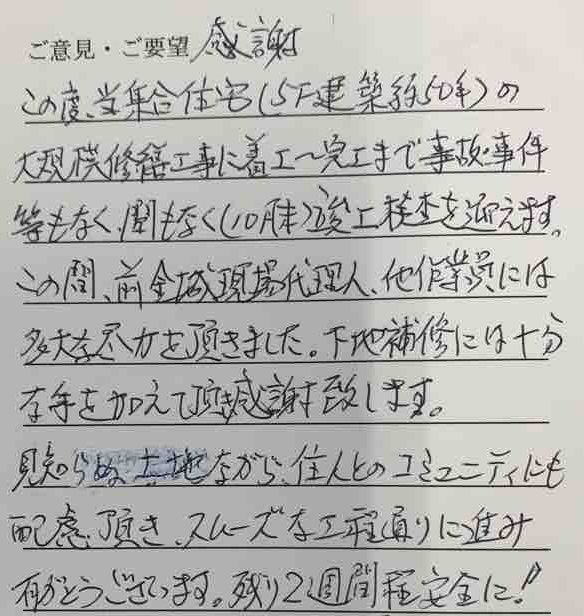 ご意見・ご要望 感謝
この度、当集合住宅(5F建築約50年)の
大規模修繕工事に着工〜完工まで事故・事件
等もなく、間もなく(10月末)竣工検査を迎えます。
この間、前金城現場代理人、他作業員には
多大な尽力を頂きました。下地補修には十分
な手を加えて頂き感謝致します。
見知らぬ土地ながら、住人とのコミュニティにも
配慮頂き、スムーズな工程通りに進み
有がとうございます。残り2週間程安全に!!